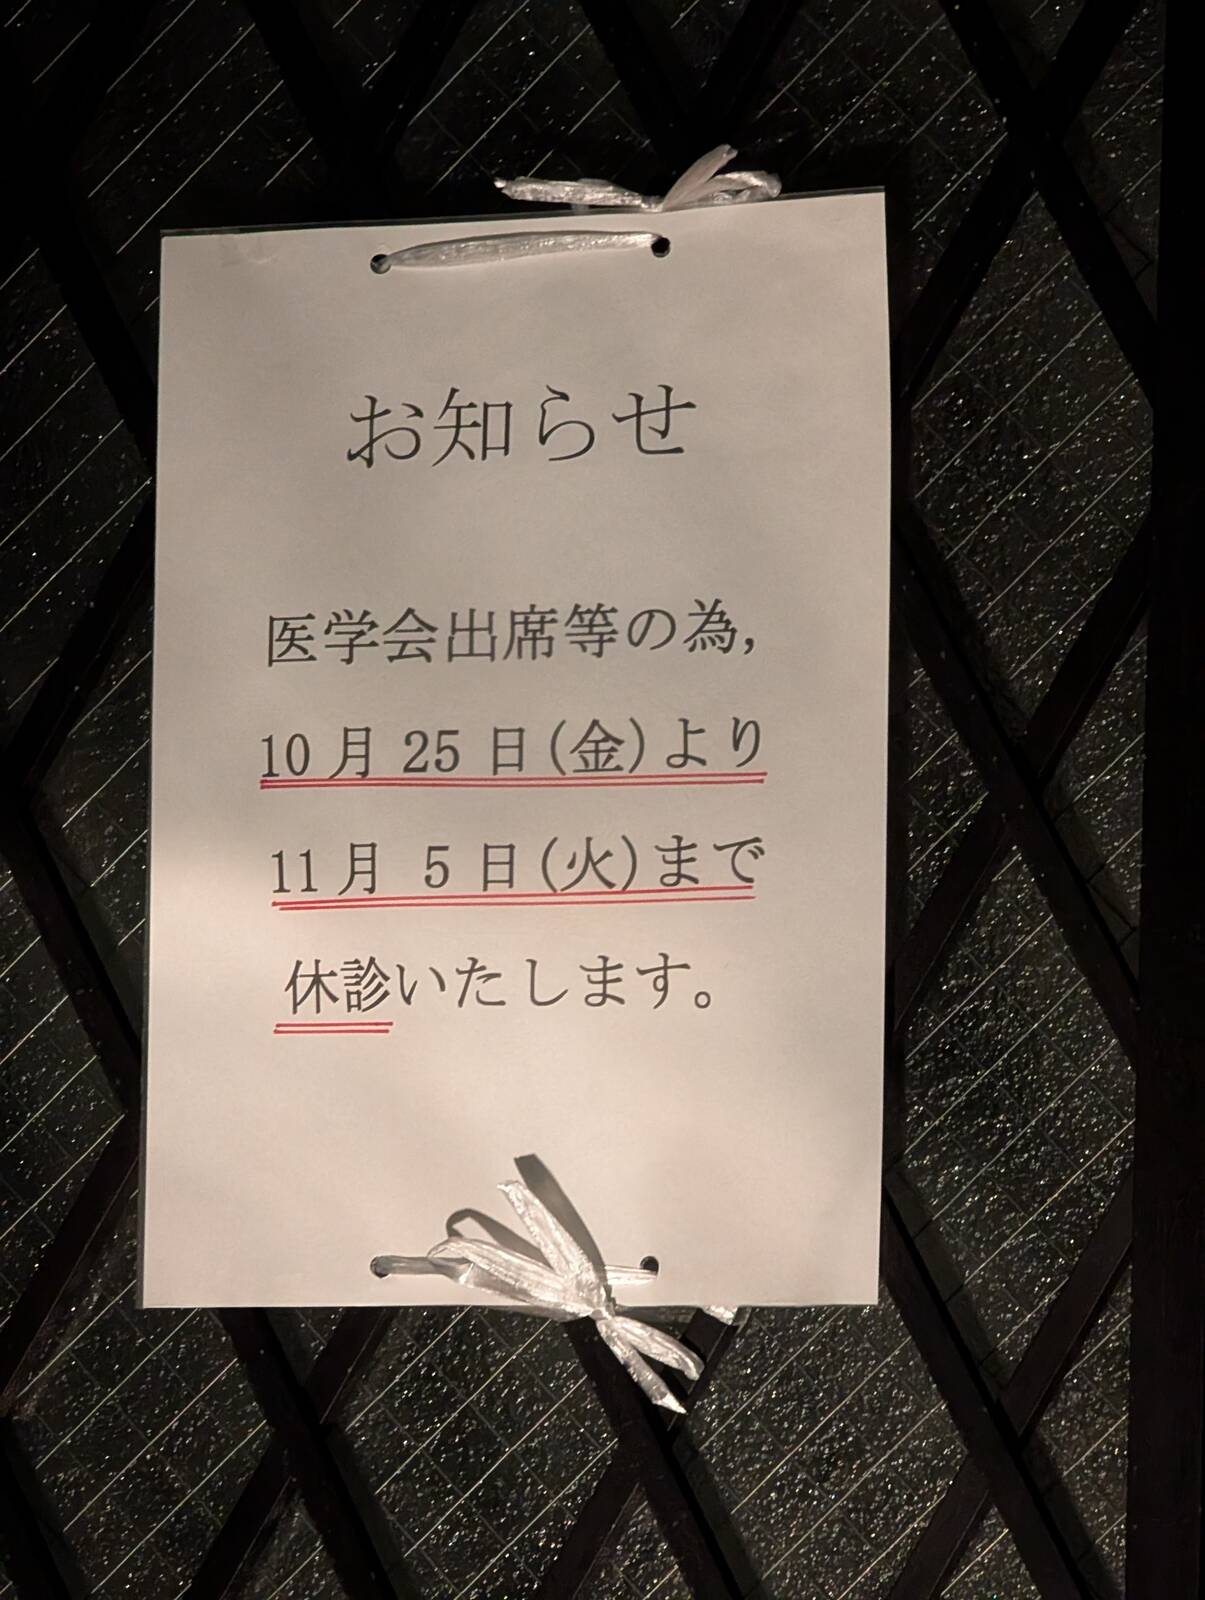 お知らせ
医学会出席等の為,
10月 25 日(金)より
11月 5 日(火)まで
休診いたします。